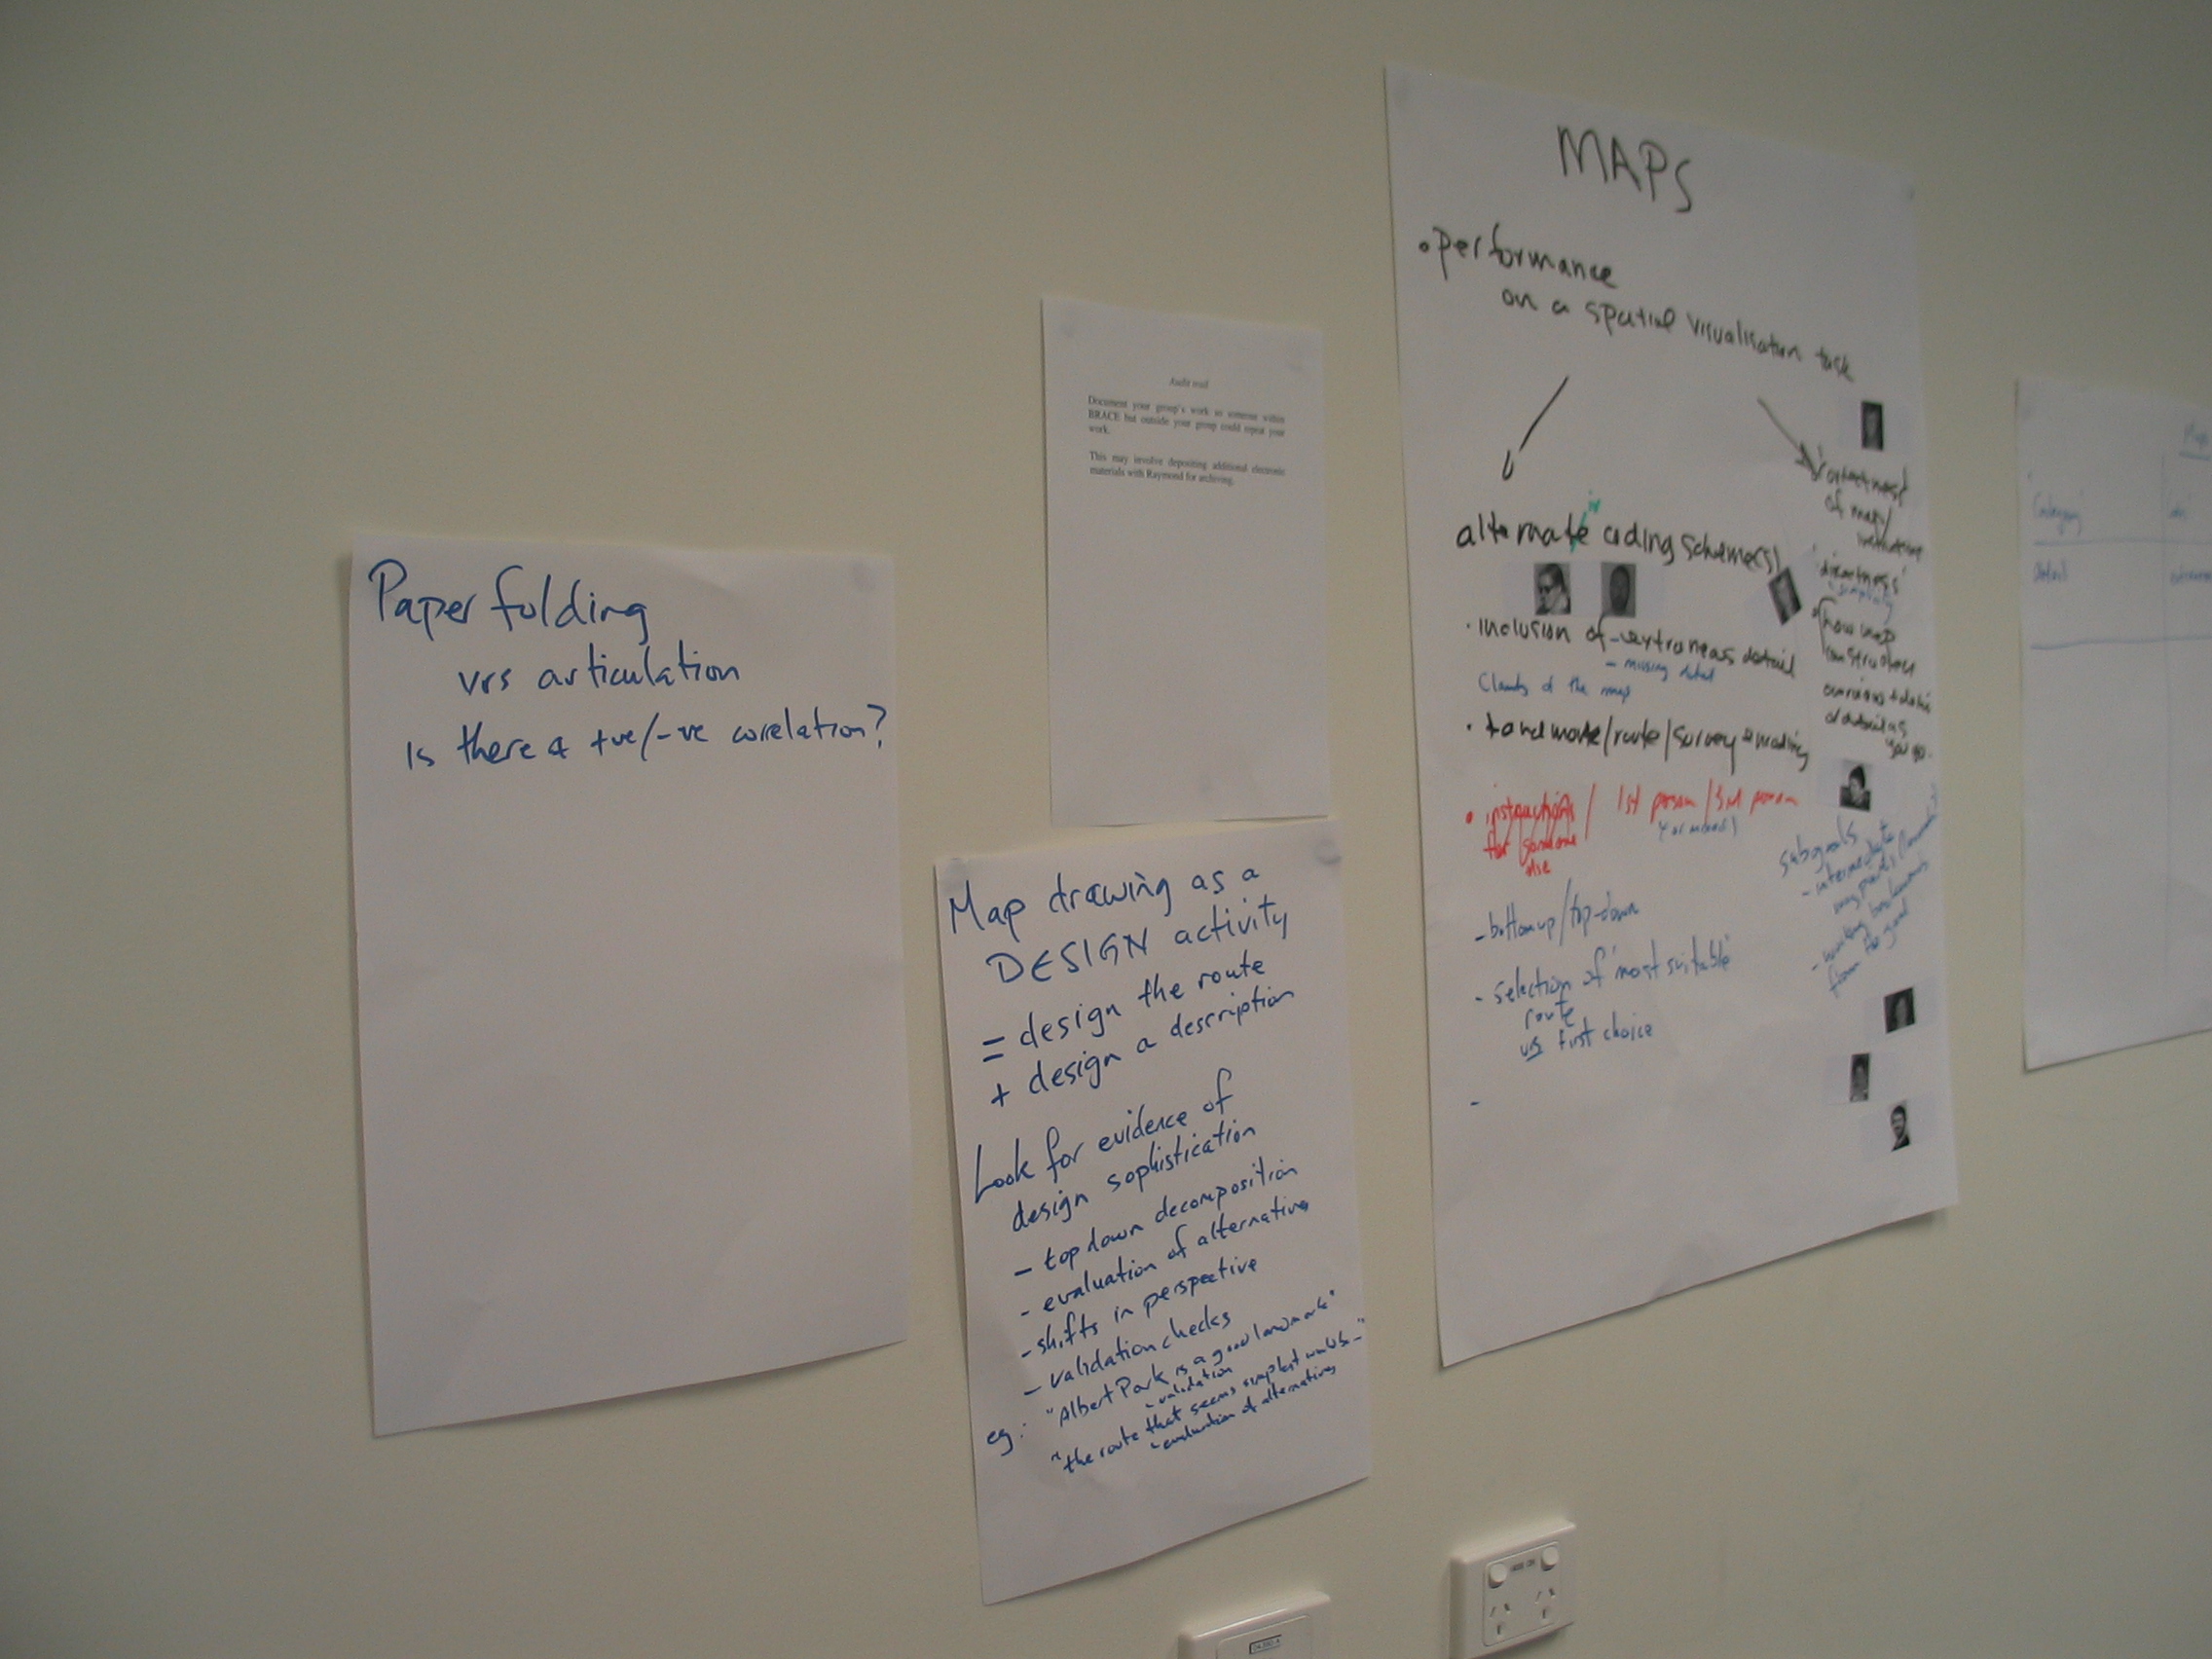 Paper folding
vrs articulation
Is there a +ve/-ve correlation?
Audit trail
Document your group's work so someone within
BRACE but outside your group could repeat your
work.
This may involve depositing additional electronic
materials with Raymond for archiving.
Map drawing as a
DESIGN activity
= design the route
+ design a description
Look for evidence of
design sophistication
- top down decomposition
- evaluation of alternatives
- shifts in perspective
- validation checks
eg: "Albert Park is a good landmark"
- validation
"the route that seems simplest would be -"
- evaluation of alternatives
MAPS
• performance
on a spatial visualisation task
alternate coding scheme(s)
• inclusion of extraneous detail
- missing detail
Clarity of the map
• landmark/route/survey encoding
• instructions / 1st person / 3rd person
for someone
else
- bottom up/top-down
- selection of 'most suitable'
route
vrs first choice
-
'correctness'
of map/
'directness'
'simplicity'
• how map
constructed
of detail as
you go.
subgoals
- intermediate
- working backwards
from the goal
'Category'
detail